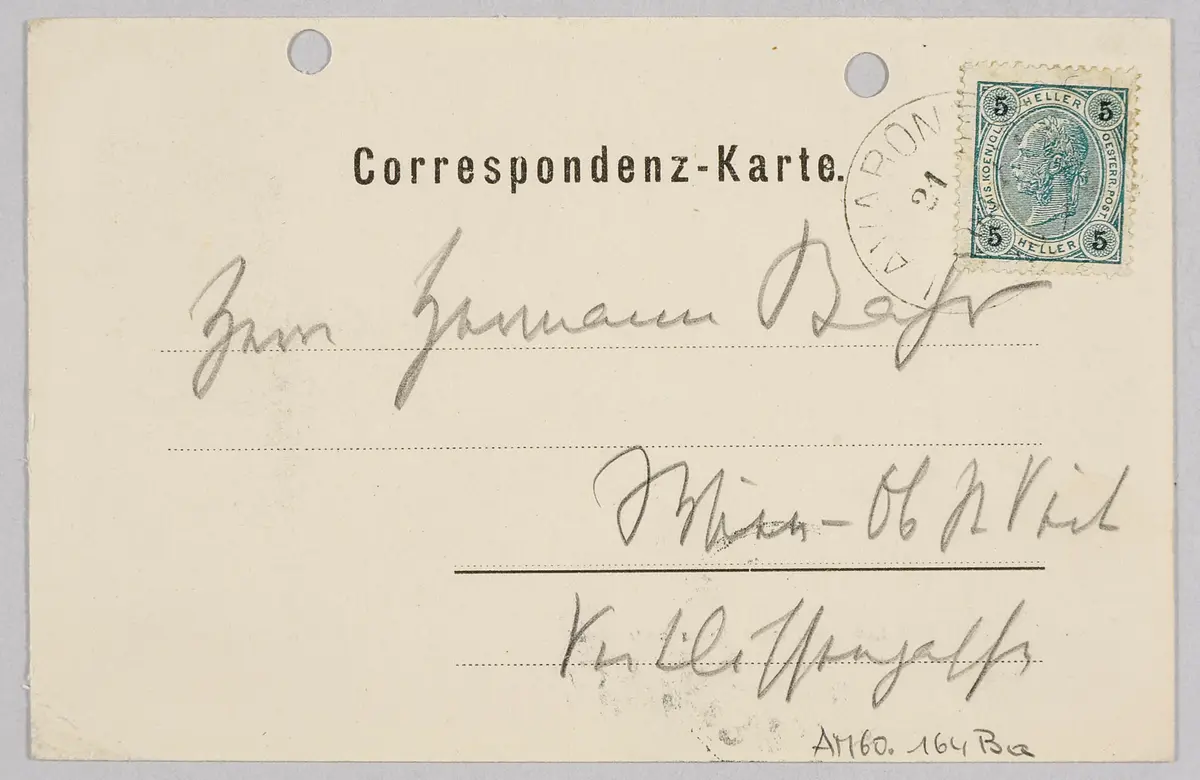 Correspondenz-Karte.
LAVARONE
21
5 HELLER 5
KAIS. KOENIGL. OESTERR. POST
5 HELLER 5
Herrn Hermann Bahr
Wien - Ob St Veit
Veitlissengasse
AM60.164Ba